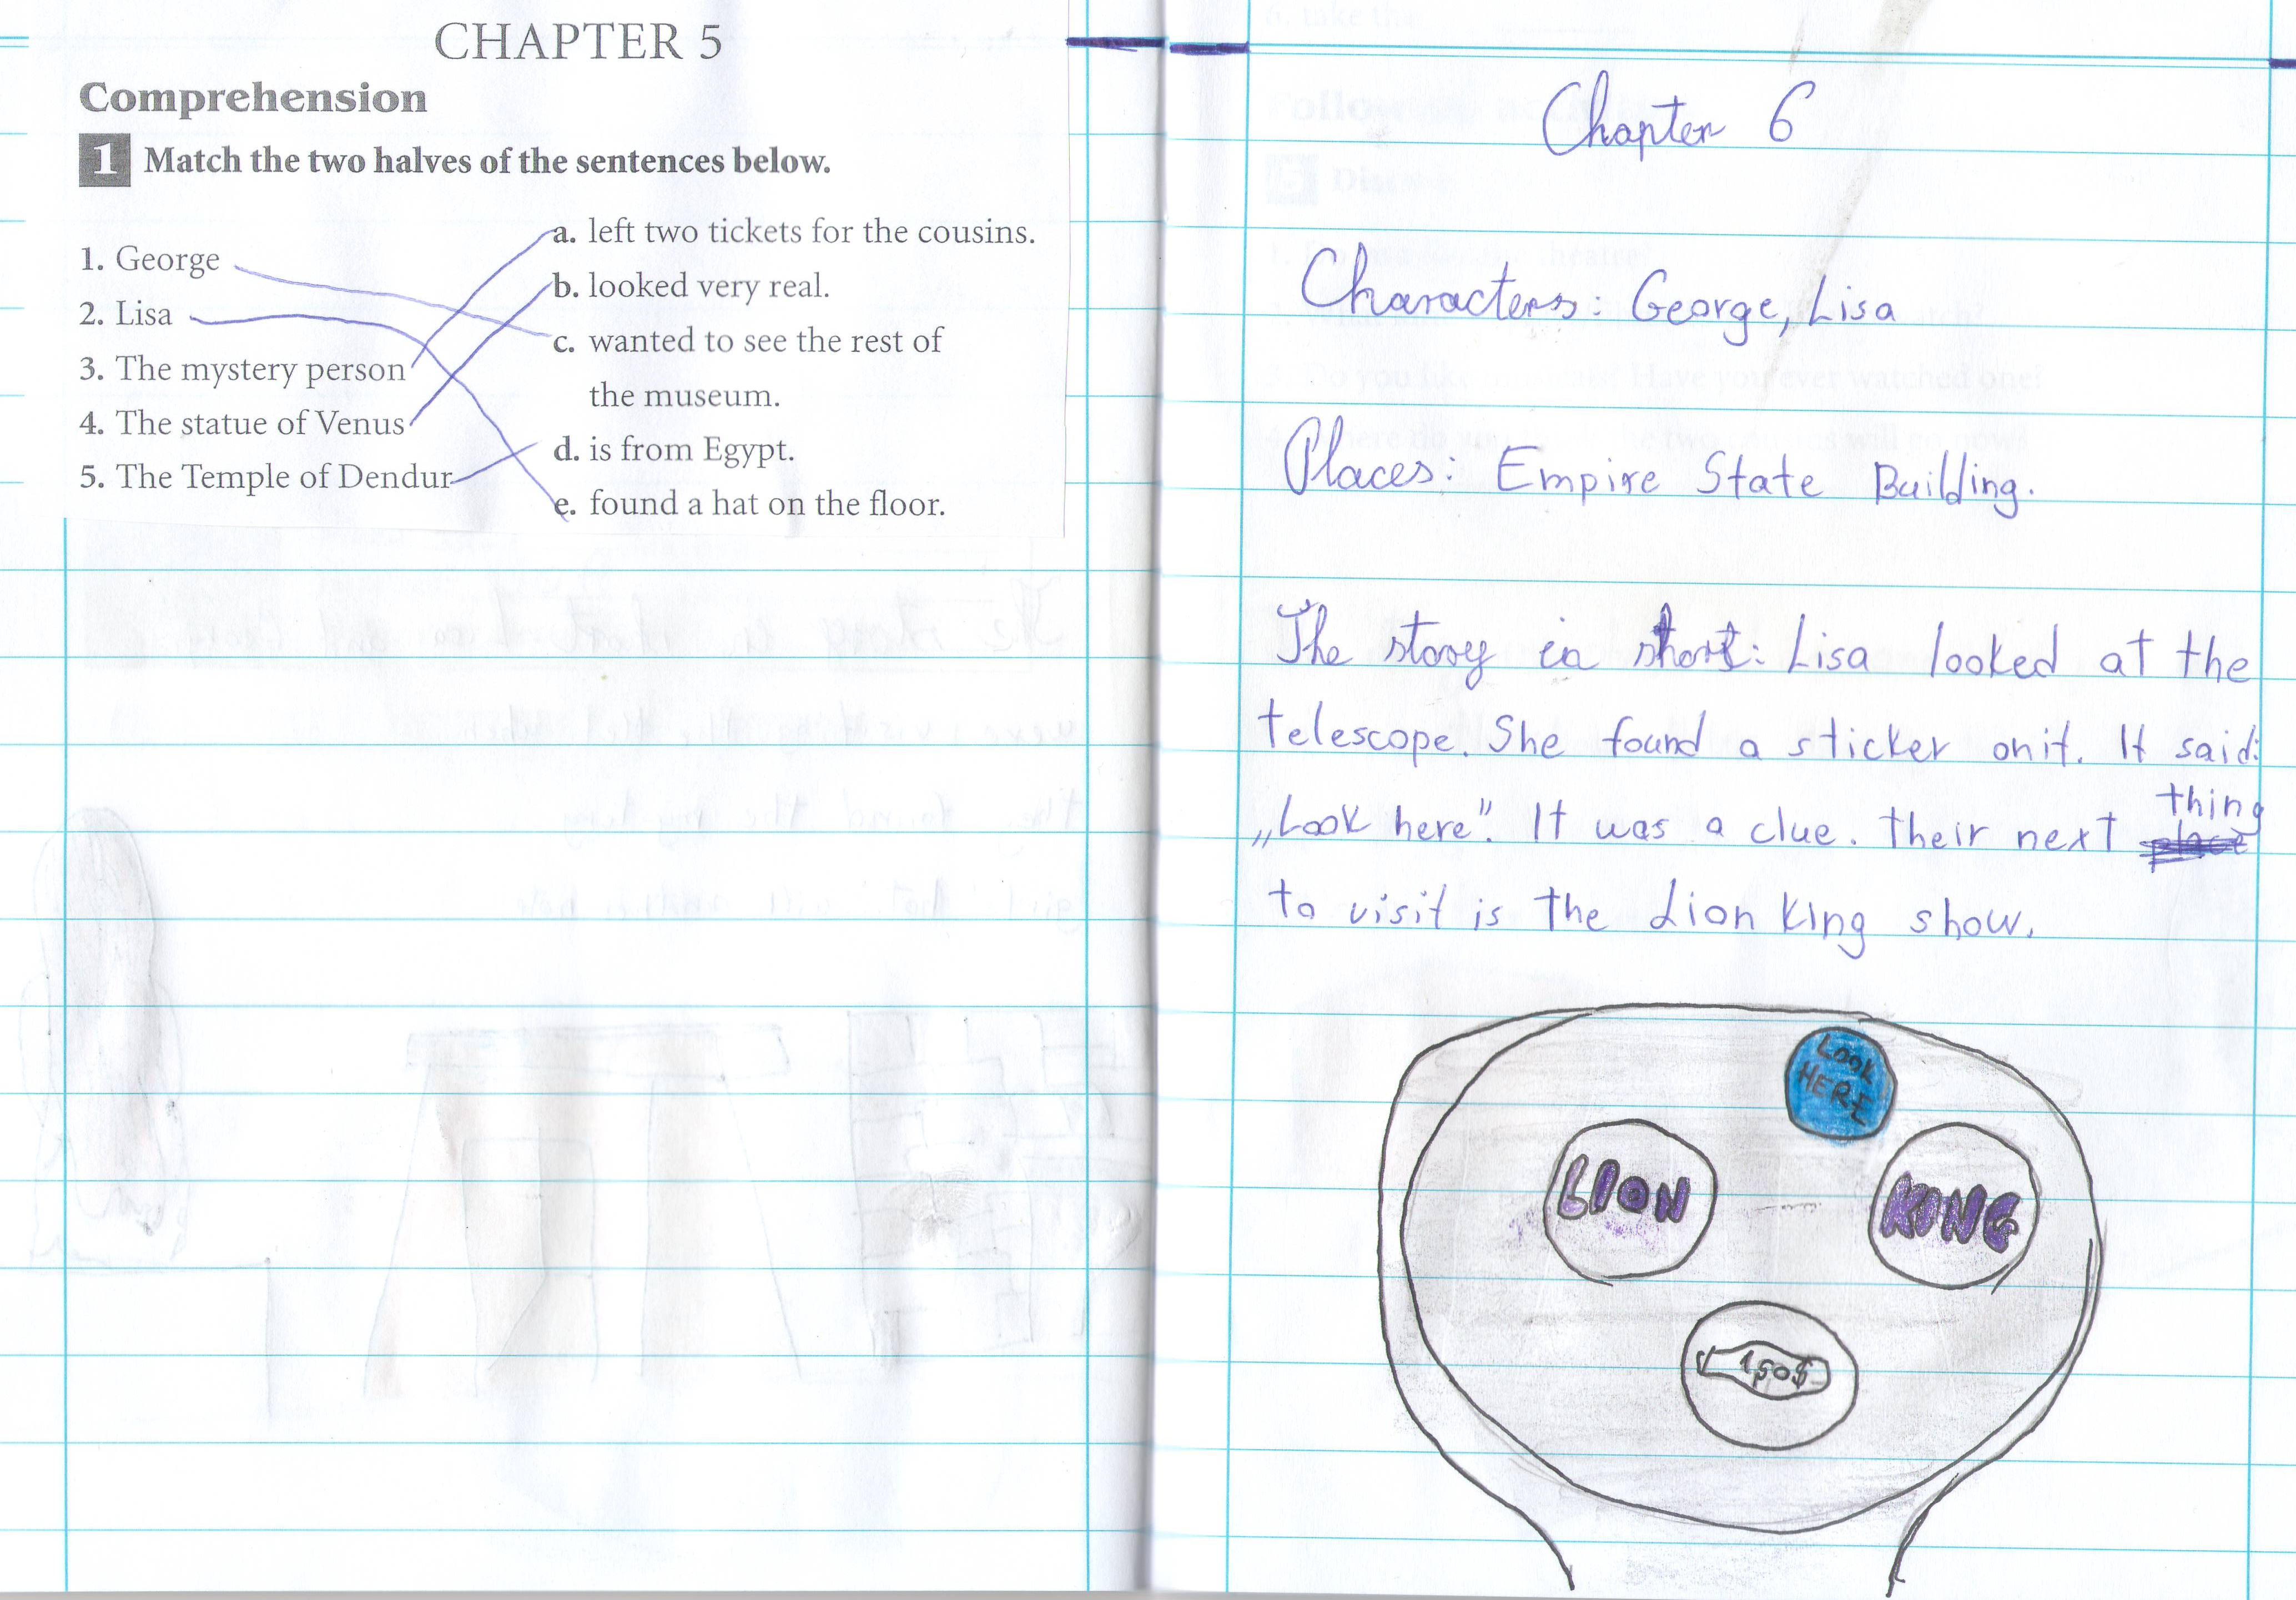 CHAPTER 5
Comprehension
1 Match the two halves of the sentences below.
1. George
2. Lisa
3. The mystery person
4. The statue of Venus
5. The Temple of Dendur
a. left two tickets for the cousins.
b. looked very real.
c. wanted to see the rest of
the museum.
d. is from Egypt.
e. found a hat on the floor.
Chapter 6
Characters: George, Lisa
Places: Empire State Building.
The story in short: Lisa looked at the
telescope. She found a sticker on it. It said:
„Look here". It was a clue. Their next thing
to visit is the Lion King show.
LOOK
HERE
LION
KING
150$